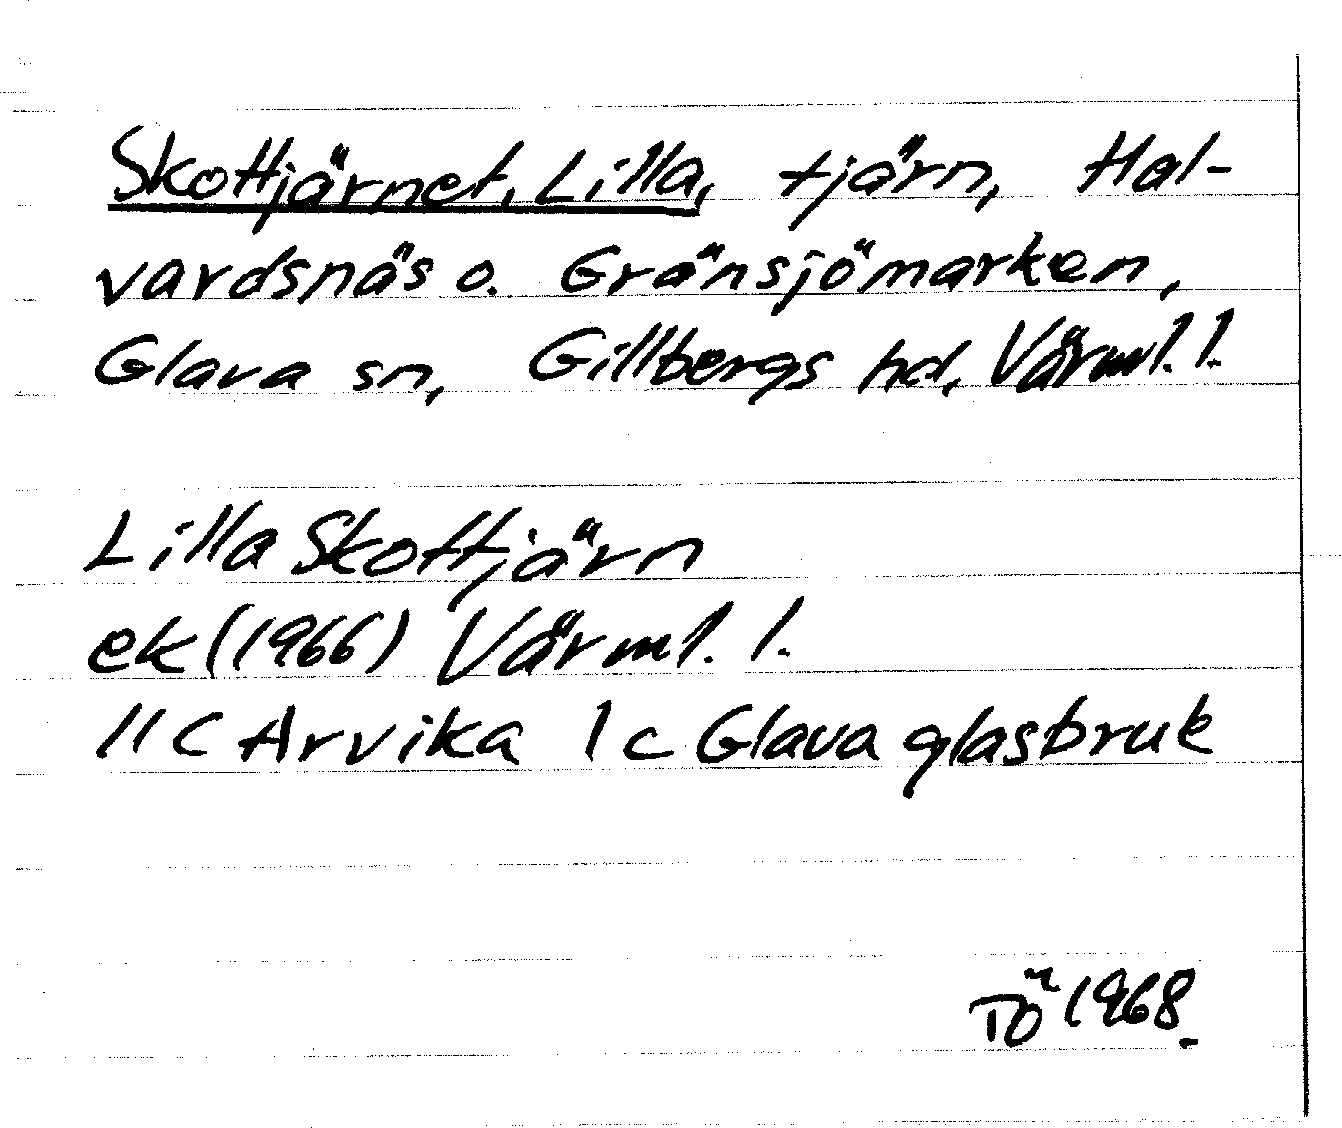 Skottjärnet, Lilla, tjärn, Hal-
vardsnäs o. Gränsjömarken,
Glava sn, Gillbergs hd, Värml. l.
Lilla Skottjärn
ek (1966) Värml. l.
11 C Arvika 1 c Glava glasbruk
TÖ 1968.